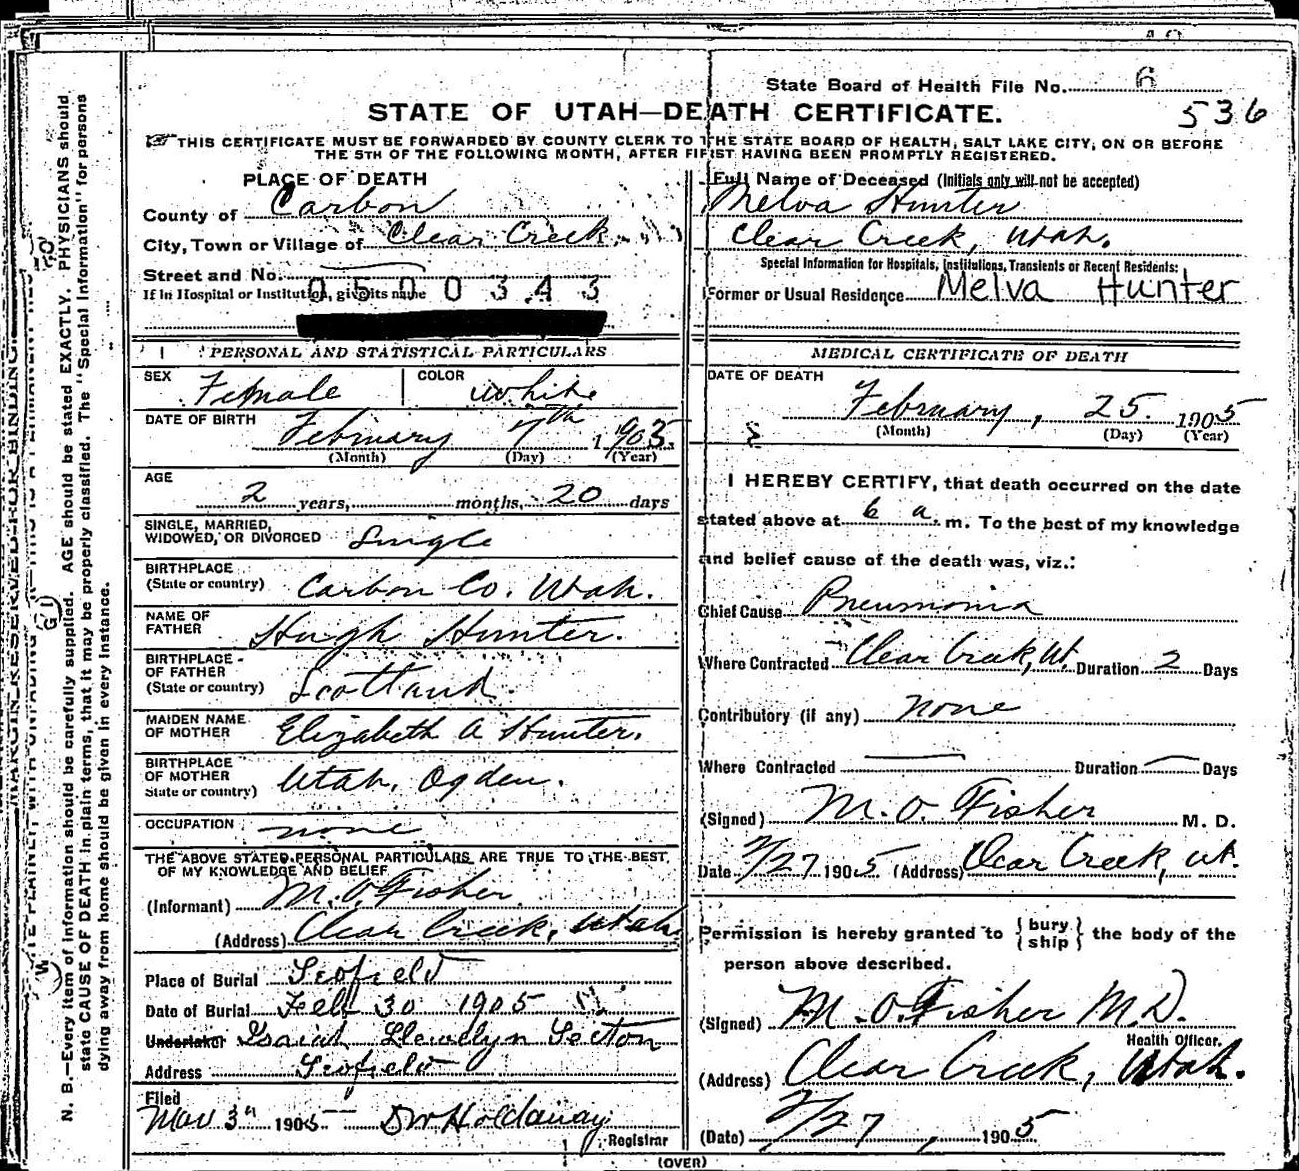 State Board of Health File No. 6
536
STATE OF UTAH—DEATH CERTIFICATE.
THIS CERTIFICATE MUST BE FORWARDED BY COUNTY CLERK TO THE STATE BOARD OF HEALTH, SALT LAKE CITY, ON OR BEFORE
THE 5TH OF THE FOLLOWING MONTH, AFTER FIRST HAVING BEEN PROMPTLY REGISTERED.
PLACE OF DEATH
County of Carbon
City, Town or Village of Clear Creek
Street and No.
0500343
If in Hospital or Institution, give its name
PERSONAL AND STATISTICAL PARTICULARS
SEX Female COLOR White
DATE OF BIRTH February 7th 1903
(Month) (Day) (Year)
AGE
2 years, months, 20 days
SINGLE, MARRIED,
WIDOWED, OR DIVORCED Single
BIRTHPLACE
(State or country) Carbon Co. Utah.
NAME OF
FATHER Hugh Hunter.
BIRTHPLACE
OF FATHER
(State or country) Scotland.
MAIDEN NAME
OF MOTHER Elizabeth A Hunter.
BIRTHPLACE
OF MOTHER
State or country) Utah, Ogden.
OCCUPATION none
THE ABOVE STATED PERSONAL PARTICULARS ARE TRUE TO THE BEST
OF MY KNOWLEDGE AND BELIEF
(Informant) M.O. Fisher
(Address) Clear Creek, Utah
Place of Burial Scofield
Date of Burial Feb 30 1905
Undertaker Isaiah Llewelyn Sexton
Address Scofield
Filed
Mar 3" 1905 DW Holdaway
Registrar
Full Name of Deceased (Initials only will not be accepted)
Melva Hunter
Clear Creek, Utah.
Special Information for Hospitals, Institutions, Transients or Recent Residents:
Former or Usual Residence Melva Hunter
MEDICAL CERTIFICATE OF DEATH
DATE OF DEATH
February, 25. 1905
(Month) (Day) (Year)
I HEREBY CERTIFY, that death occurred on the date
stated above at 6 a. m. To the best of my knowledge
and belief cause of the death was, viz.:
Chief Cause Pneumonia
Where Contracted Clear Creek, Ut. Duration 2 Days
Contributory (if any) none
Where Contracted Duration Days
(Signed) M.O. Fisher M. D.
Date 2/27 1905 (Address) Clear Creek, Ut.
Permission is hereby granted to {bury
ship} the body of the
person above described.
(Signed) M.O. Fisher M.D.
Health Officer.
(Address) Clear Creek, Utah.
(Date) 2/27, 1905
(OVER)
N. B.—Every item of information should be carefully supplied. AGE should be stated EXACTLY. PHYSICIANS should
state CAUSE OF DEATH in plain terms, that it may be properly classified. The "Special Information" for persons
dying away from home should be given in every instance.